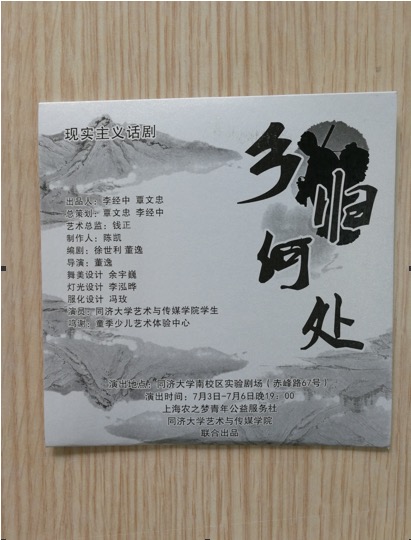 现实主义话剧
乡归何处
出品人：李经中 覃文忠
总策划：覃文忠 李经中
艺术总监：钱正
制作人：陈凯
编剧：徐世利 董逸
导演：董逸
舞美设计 余宇巍
灯光设计 李泓晔
服化设计 冯玫
演员：同济大学艺术与传媒学院学生
鸣谢：童季少儿艺术体验中心
演出地点：同济大学南校区实验剧场（赤峰路67号）
演出时间：7月3日-7月6日晚19：00
上海农之梦青年公益服务社
同济大学艺术与传媒学院
联合出品